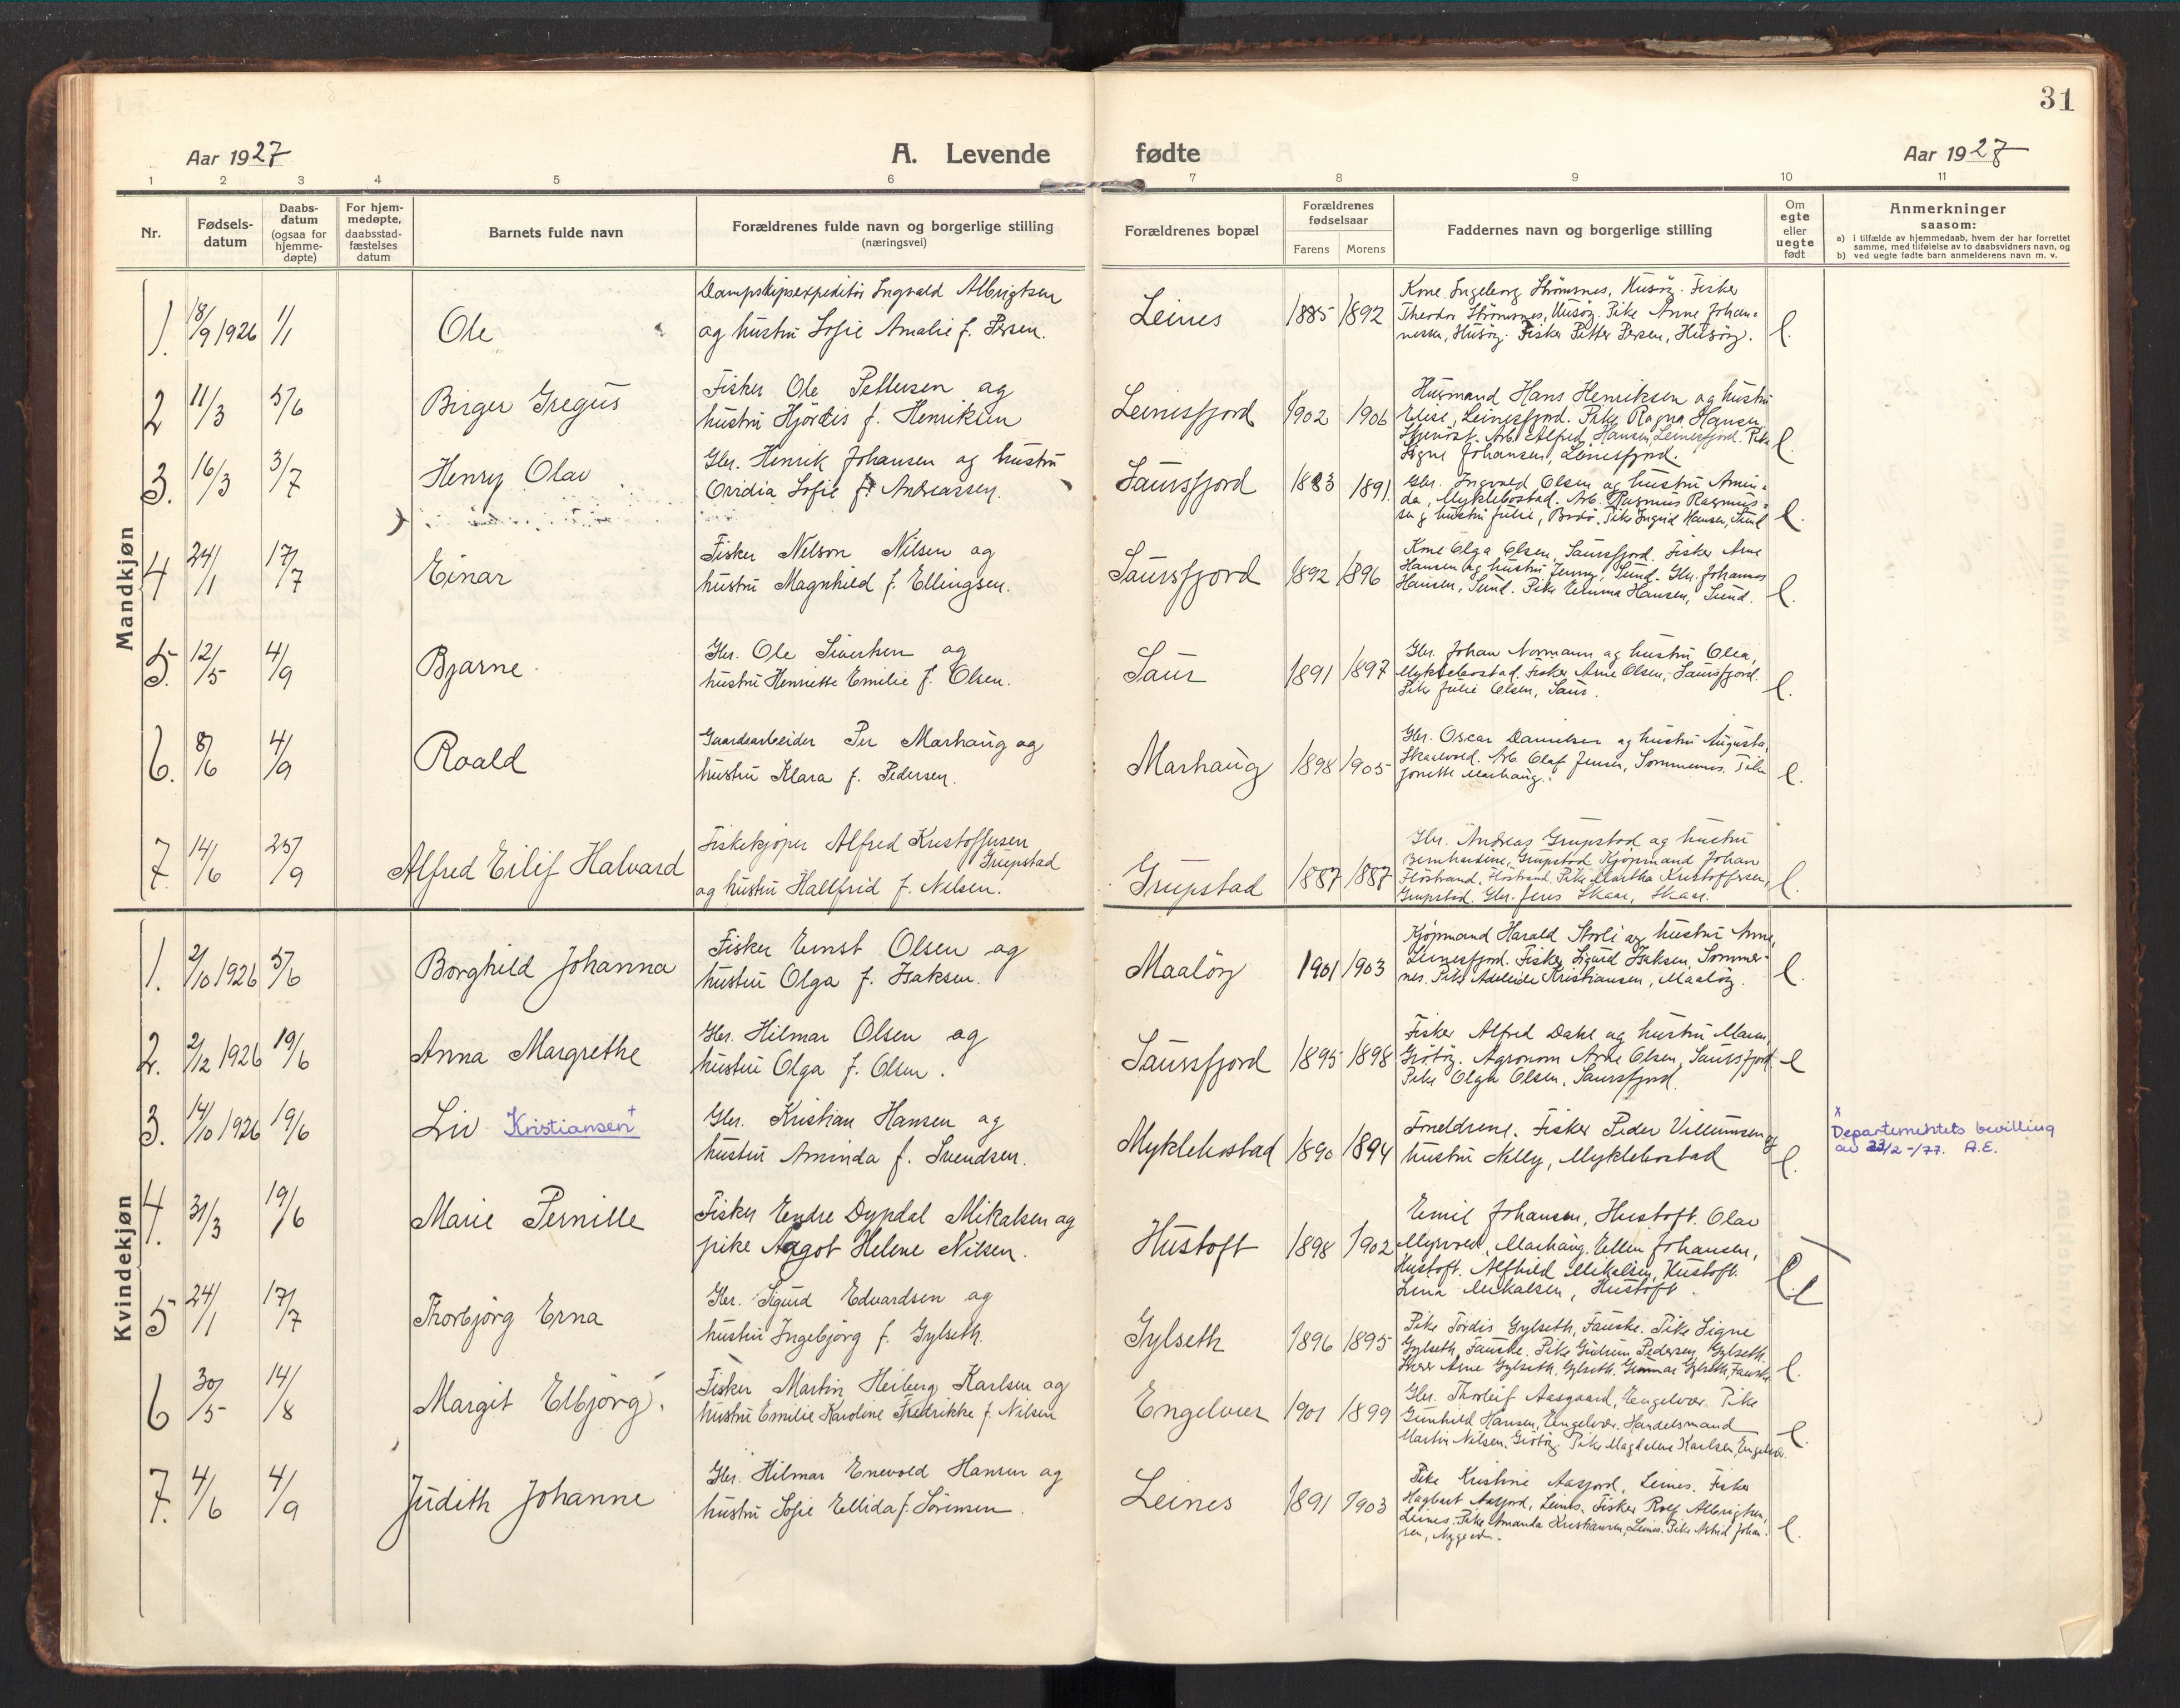 31
Aar 1927
A. Levende fødte
Aar 1927
1 2 3 4 5 6 7 8 9 10 11
Nr.
Fødsels-
datum
Daabs-
datum
(ogsaa for
hjemme-
døpte)
For hjem-
medøpte,
daabsstad-
fæstelses
datum
Barnets fulde navn
Forældrenes fulde navn og borgerlige stilling
(næringsvei)
Forældrenes bopæl
Forældrenes
fødselsaar
Farens Morens
Faddernes navn og borgerlige stilling
Om
egte
eller
uegte
født
Anmerkninger
saasom:
a) i tilfælde av hjemmedaab, hvem der har forrettet
samme, med tilføielse av to daabsvidners navn, og
b) ved uegte fødte barn anmelderens navn m. v.
Mandkjøn
1. 18/9 1926 1/1 Ole
Dampskipsexpeditør Ingvald Albrigtsen
og hustru Sofie Amalie f. Persen.
Leines 1885 1892
Kone Ingeborg Strømsnes, Husöy. Fisker
Theodor Strømsnes, Husöy. Pike Anne Johan-
nessen, Husöy. Fisker Petter Persen, Husöy.
e.
2 11/3 5/6 Birger Gregus
Fisker Ole Pettersen og
hustru Hjördis f. Henriksen
Leinesfjord 1902 1906
Husmand Hans Henriksen og hustru
Elise, Leinesfjord. Pike Ragna Hansen,
Arb. Alfred Hansen, Leinesfjord. Pike
Signe Johansen, Leinesfjord.
e.
3. 16/3 3/7 Henry Olav
Gbr. Henrik Johansen og hustru
Ovidia Sofie f. Andreassen.
Saursfjord 1883 1891
Gbr. Ingvald Olsen og hustru Amin-
da, Myklebostad. Arb. Rasmus Rasmus-
sen og hustru Julie, Bodö. Pike Ingrid Hansen, Sund
e.
4 24/1 17/7 Einar
Fisker Nelson Nilsen og
hustru Magnhild f. Ellingsen.
Saursfjord 1892 1896
Kone Olga Olsen, Saursfjord. Fisker Arne
Hansen og hustru Jenny, Sund. Gbr. Johannes
Hansen, Sund. Pike Emma Hansen, Sund.
e.
5. 12/5 4/9 Bjarne
Gbr. Ole Sivertsen og
hustru Henriette Emilie f. Olsen.
Saur 1891 1897
Gbr. Johan Normann og hustru Olea,
Myklebostad. Fisker Arne Olsen, Saursfjord.
Pike Julie Olsen, Saur.
e.
6. 8/6 4/9 Roald
Gaardsarbeider Per Marhaug og
hustru Klara f. Pedersen.
Marhaug 1898 1905
Gbr. Oscar Danielsen og hustru Augusta,
Skaelvold. Arb. Olaf Jensen, Sommernes. Pike
Jonette Marhaug.
e.
7. 14/6 25/9 Alfred Eilif Halvard
Fiskekjøper Alfred Kristoffersen
Grupstad
og hustru Hallfrid f. Nilsen.
Grupstad 1887 1887
Gbr. Andreas Grupstad og hustru
Bernhardine, Grupstad. Kjøpmand Johan
Flöstrand, Flöstrand. Pike Martha Kristoffersen,
Grupstad. Gbr. Jens Skaar, Skaar.
e.
Kvindekjøn
1. 2/10 1926 5/6 Borghild Johanna
Fisker Ernst Olsen og
hustru Olga f. Isaksen.
Maalöy 1901 1903
Kjøpmand Harald Storli og hustru Anna,
Leinesfjord. Fisker Sigurd Isaksen, Sommer-
nes. Pike Adeleide Kristiansen, Maalöy.
e.
2. 2/12 1926 19/6 Anna Margrethe
Gbr. Hilmar Olsen og
hustru Olga f. Olsen.
Saursfjord 1895 1898
Fisker Alfred Dahl og hustru Maren,
Grötöy. Agronom Arne Olsen, Saursfjord.
Pike Olga Olsen, Saursfjord.
e
3. 14/10 1926 19/6 Liv Kristiansen +
Gbr. Kristian Hansen og
hustru Aminda f. Svendsen.
Myklebostad 1890 1894
Foreldrene. Fisker Peder Villumsen og
hustru Nelly, Myklebostad
e.
x
Departementets bevilling
av 23/2-/77. A.E.
4. 31/3 19/6 Marie Pernille
Fisker Endre Dypdal Mikalsen og
pike Aagot Helene Nilsen.
Hustoft 1898 1902
Emil Johansen, Hustoft. Olav
Myrvold, Marhaug. Ellen Johansen,
Hustoft. Alfhild Mikalsen, Hustoft.
Lina Mikalsen, Hustoft.
5 24/1 17/7 Thorbjörg Erna
Gbr. Sigurd Edvardsen og
hustru Ingebjörg f. Gylseth.
Gylseth 1896 1895
Pike Tordis Gylseth, Fauske. Pike Signe
Gylseth, Fauske. Pike Gudrun Pedersen, Gylseth.
Arne Gylseth, Gylseth. Gunnar Gylseth, Fauske
e.
6 30/5 14/8 Margit Elbjörg.
Fisker Martin Heiberg Karlsen og
hustru Emilie Karoline Fredrikke f. Nilsen
Engelvær 1901 1899
Gbr. Thorleif Aasgaard, Engelvær. Pike
Gunhild Hansen, Engelvær. Handelsmand
Martin Nilsen, Grötöy. Pike Magdalene Karlsen, Engelvær.
e.
7. 4/6 4/9 Judith Johanne
Gbr. Hilmar Enevold Hansen og
hustru Sofie Ellida f. Sörensen.
Leines 1891 1903
Pike Kristine Aasjord, Leines. Fisker
Hagbart Aasjord, Leines. Fisker Rolf Albrigtsen,
Leines. Pike Amanda Kristiansen, Leines. Pike Astrid Johan-
sen,
e.